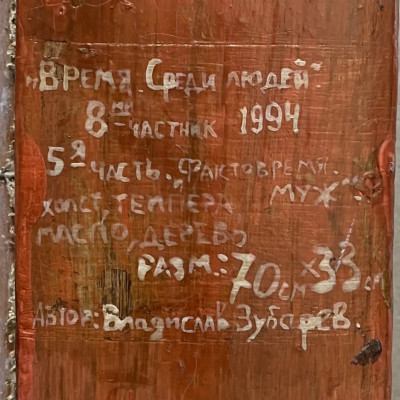 „Время Среди людей"
8ми-частник 1994
5я часть. Фактовремя.
„Муж".
холст, темпера
масло, дерево
разм.: 70см х 33см
Автор: Владислав Зубарев